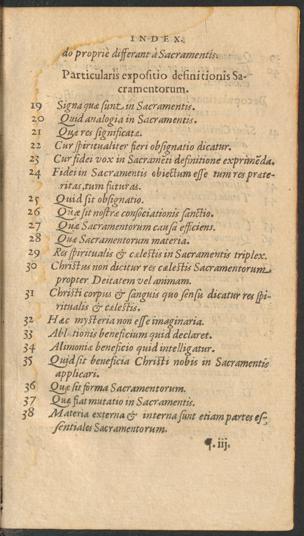 INDEX.
do propriè differant à Sacramentis.
Particularis expositio definitionis Sa-
cramentorum.
19 Signa quæ sint in Sacramentis.
20 Quid analogia in Sacramentis.
21 Quæ res significatæ.
22 Cur spiritualiter fieri obsignatio dicatur.
23 Cur fidei vox in Sacramēti definitione exprimēda.
24 Fidei in Sacramentis obiectum esse tum res præte-
ritas, tum futuras.
25 Quid sit obsignatio.
26 Quæ sit nostræ consociationis sanctio.
27 Quæ Sacramentorum causa efficiens.
28 Quæ Sacramentorum materia.
29 Res spiritualis & cælestis in Sacramentis triplex.
30 Christus non dicitur res cælestis Sacramentorum
propter Deitatem vel animam.
31 Christi corpus & sanguis quo sensu dicatur res spi-
ritualis & cælestis.
32 Hæc mysteria non esse imaginaria.
33 Ablutionis beneficium quid declaret.
34 Alimoniæ beneficio quid intelligatur.
35 Quid sit beneficia Christi nobis in Sacramentis
applicari.
36 Quæ sit forma Sacramentorum.
37 Quæ fiat mutatio in Sacramentis.
38 Materia externa & interna sunt etiam partes es-
sentiales Sacramentorum.
¶.iij.